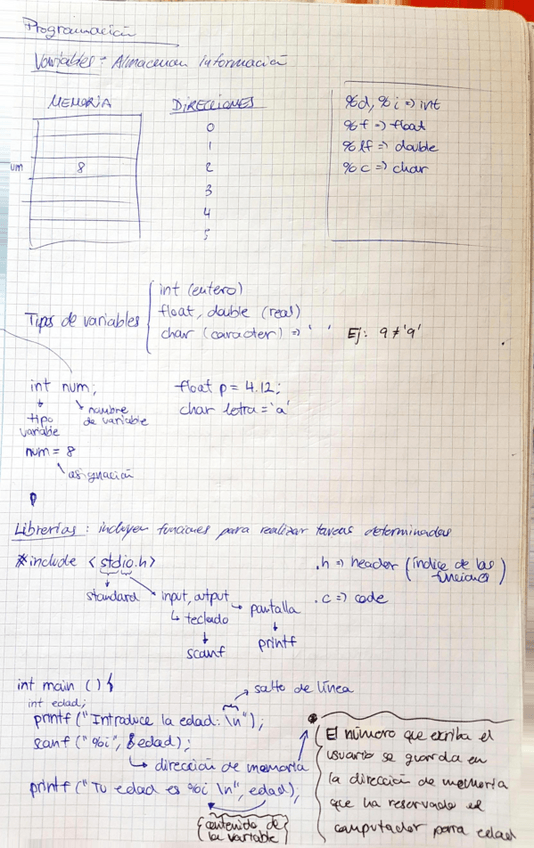 Programación
Variables: Almacenan información
MEMORIA
DIRECCIONES
0
1
um 8 2
3
4
5
%d, %i => int
%f => float
%lf => double
%c => char
Tipos de variables
int (entero)
float, double (real)
char (caracter) => ' ' Ej: 9 ≠ '9'
int num;
tipo variable
nombre de variable
num = 8
asignación
float p = 4.12;
char letra = 'a'
Librerías: incluyen funciones para realizar tareas determinadas
#include <stdio.h>
standard
input, output
teclado
scanf
pantalla
printf
.h => header (índice de las funciones)
.c => code
int main () {
int edad;
salto de línea
printf ("Introduce la edad: \n");
scanf ("%i", &edad);
dirección de memoria
printf ("Tu edad es %i \n", edad);
contenido de la variable
El número que escriba el
usuario se guarda en
la dirección de memoria
que ha reservado el
computador para edad